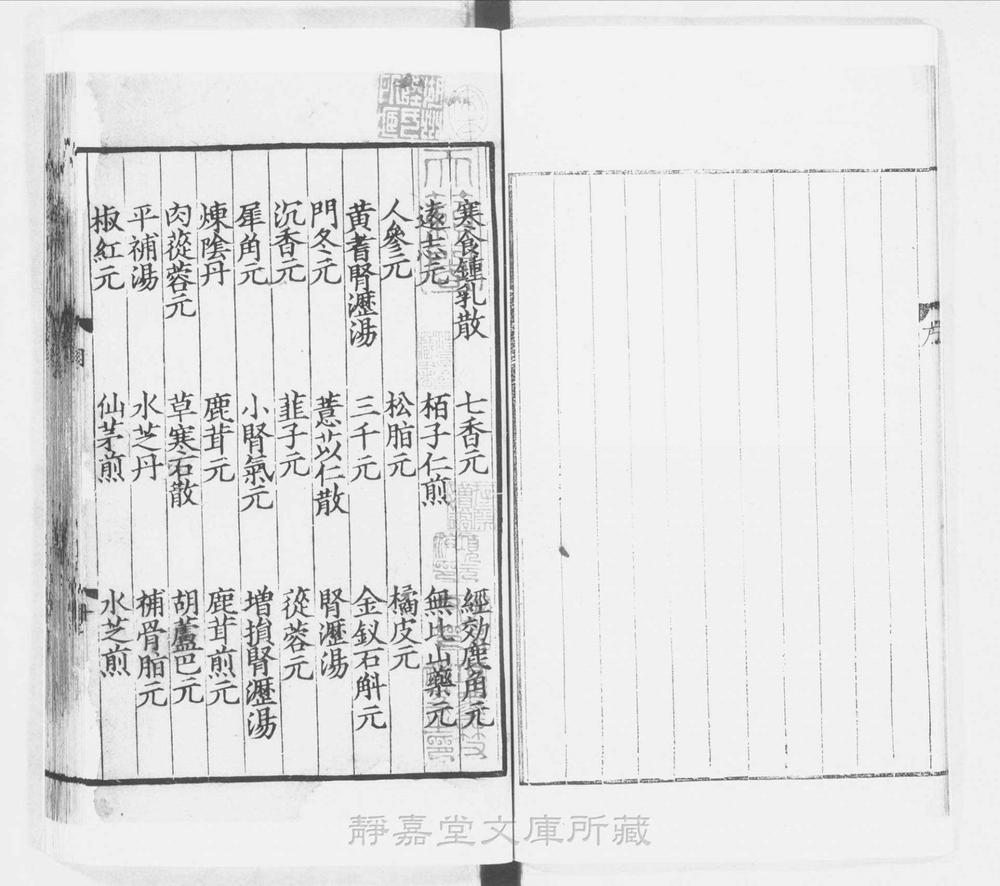 寒食鍾乳散 七香元 經効鹿角元
遠志元 栢子仁煎 無比山藥元
人參元 松脂元 橘皮元
黃耆腎瀝湯 三千元 金釵石斛元
門冬元 薏苡仁散 腎瀝湯
沉香元 韮子元 蓯蓉元
犀角元 小腎氣元 增損腎瀝湯
煉陰丹 鹿茸元 鹿茸煎元
肉蓯蓉元 草寒石散 胡蘆巴元
平補湯 水芝丹 補骨脂元
椒紅元 仙茅煎 水芝煎
靜嘉堂文庫所藏